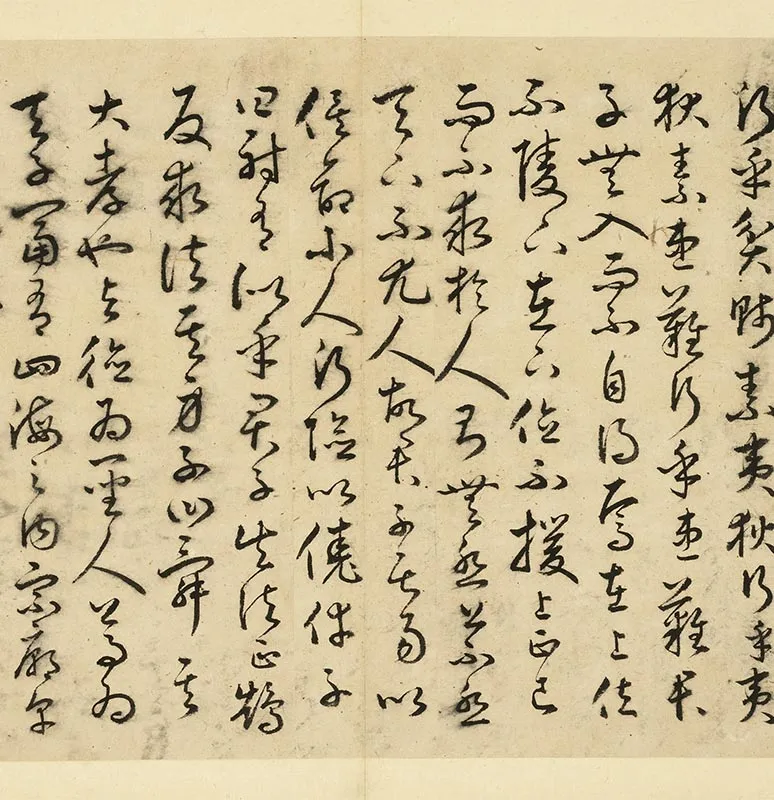 行乎貧賤素夷狄行乎夷
狄素患難行乎患難君
子無入而不自得焉在上位
不陵下在下位不援上正己
而不求於人則無怨上不怨
天下不尤人故君子居易以
俟命小人行險以徼倖子
曰射有似乎君子失諸正鵠
反求諸其身子曰舜其
大孝也與德為聖人尊為
天子富有四海之内宗廟享